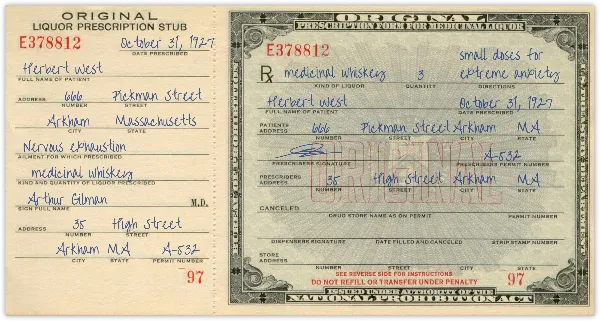 ORIGINAL
LIQUOR PRESCRIPTION STUB
E378812 October 31, 1927
DATE PRESCRIBED
Herbert West
FULL NAME OF PATIENT
ADDRESS 666 Pickman Street
NUMBER STREET
Arkham Massachusetts
CITY STATE
Nervous exhaustion
AILMENT FOR WHICH PRESCRIBED
medicinal whiskey
KIND AND QUANTITY OF LIQUOR PRESCRIBED
Arthur Gilman M.D.
SIGN FULL NAME
ADDRESS 35 High Street
NUMBER STREET
Arkham MA A-532
CITY STATE PERMIT NUMBER
97
ORIGINAL
PRESCRIPTION FORM FOR MEDICINAL LIQUOR
E378812
small doses for
Rx medicinal whiskey 3 extreme anxiety
KIND OF LIQUOR QUANTITY DIRECTIONS
Herbert West October 31, 1927
FULL NAME OF PATIENT DATE PRESCRIBED
PATIENTS ADDRESS 666 Pickman Street Arkham MA
NUMBER STREET CITY STATE
A-532
PRESCRIBERS SIGNATURE PRESCRIBERS PERMIT NUMBER
ORIGINAL
PRESCRIBERS ADDRESS 35 High Street Arkham MA
NUMBER STREET CITY STATE
CANCELED
DRUG STORE NAME AS ON PERMIT PERMIT NUMBER
DISPENSERS SIGNATURE DATE FILLED AND CANCELLED STRIP STAMP NUMBER
STORE ADDRESS
NUMBER STREET CITY STATE
SEE REVERSE SIDE FOR INSTRUCTIONS
DO NOT REFILL OR TRANSFER UNDER PENALTY 97
ISSUED UNDER AUTHORITY OF THE
NATIONAL PROHIBITION ACT